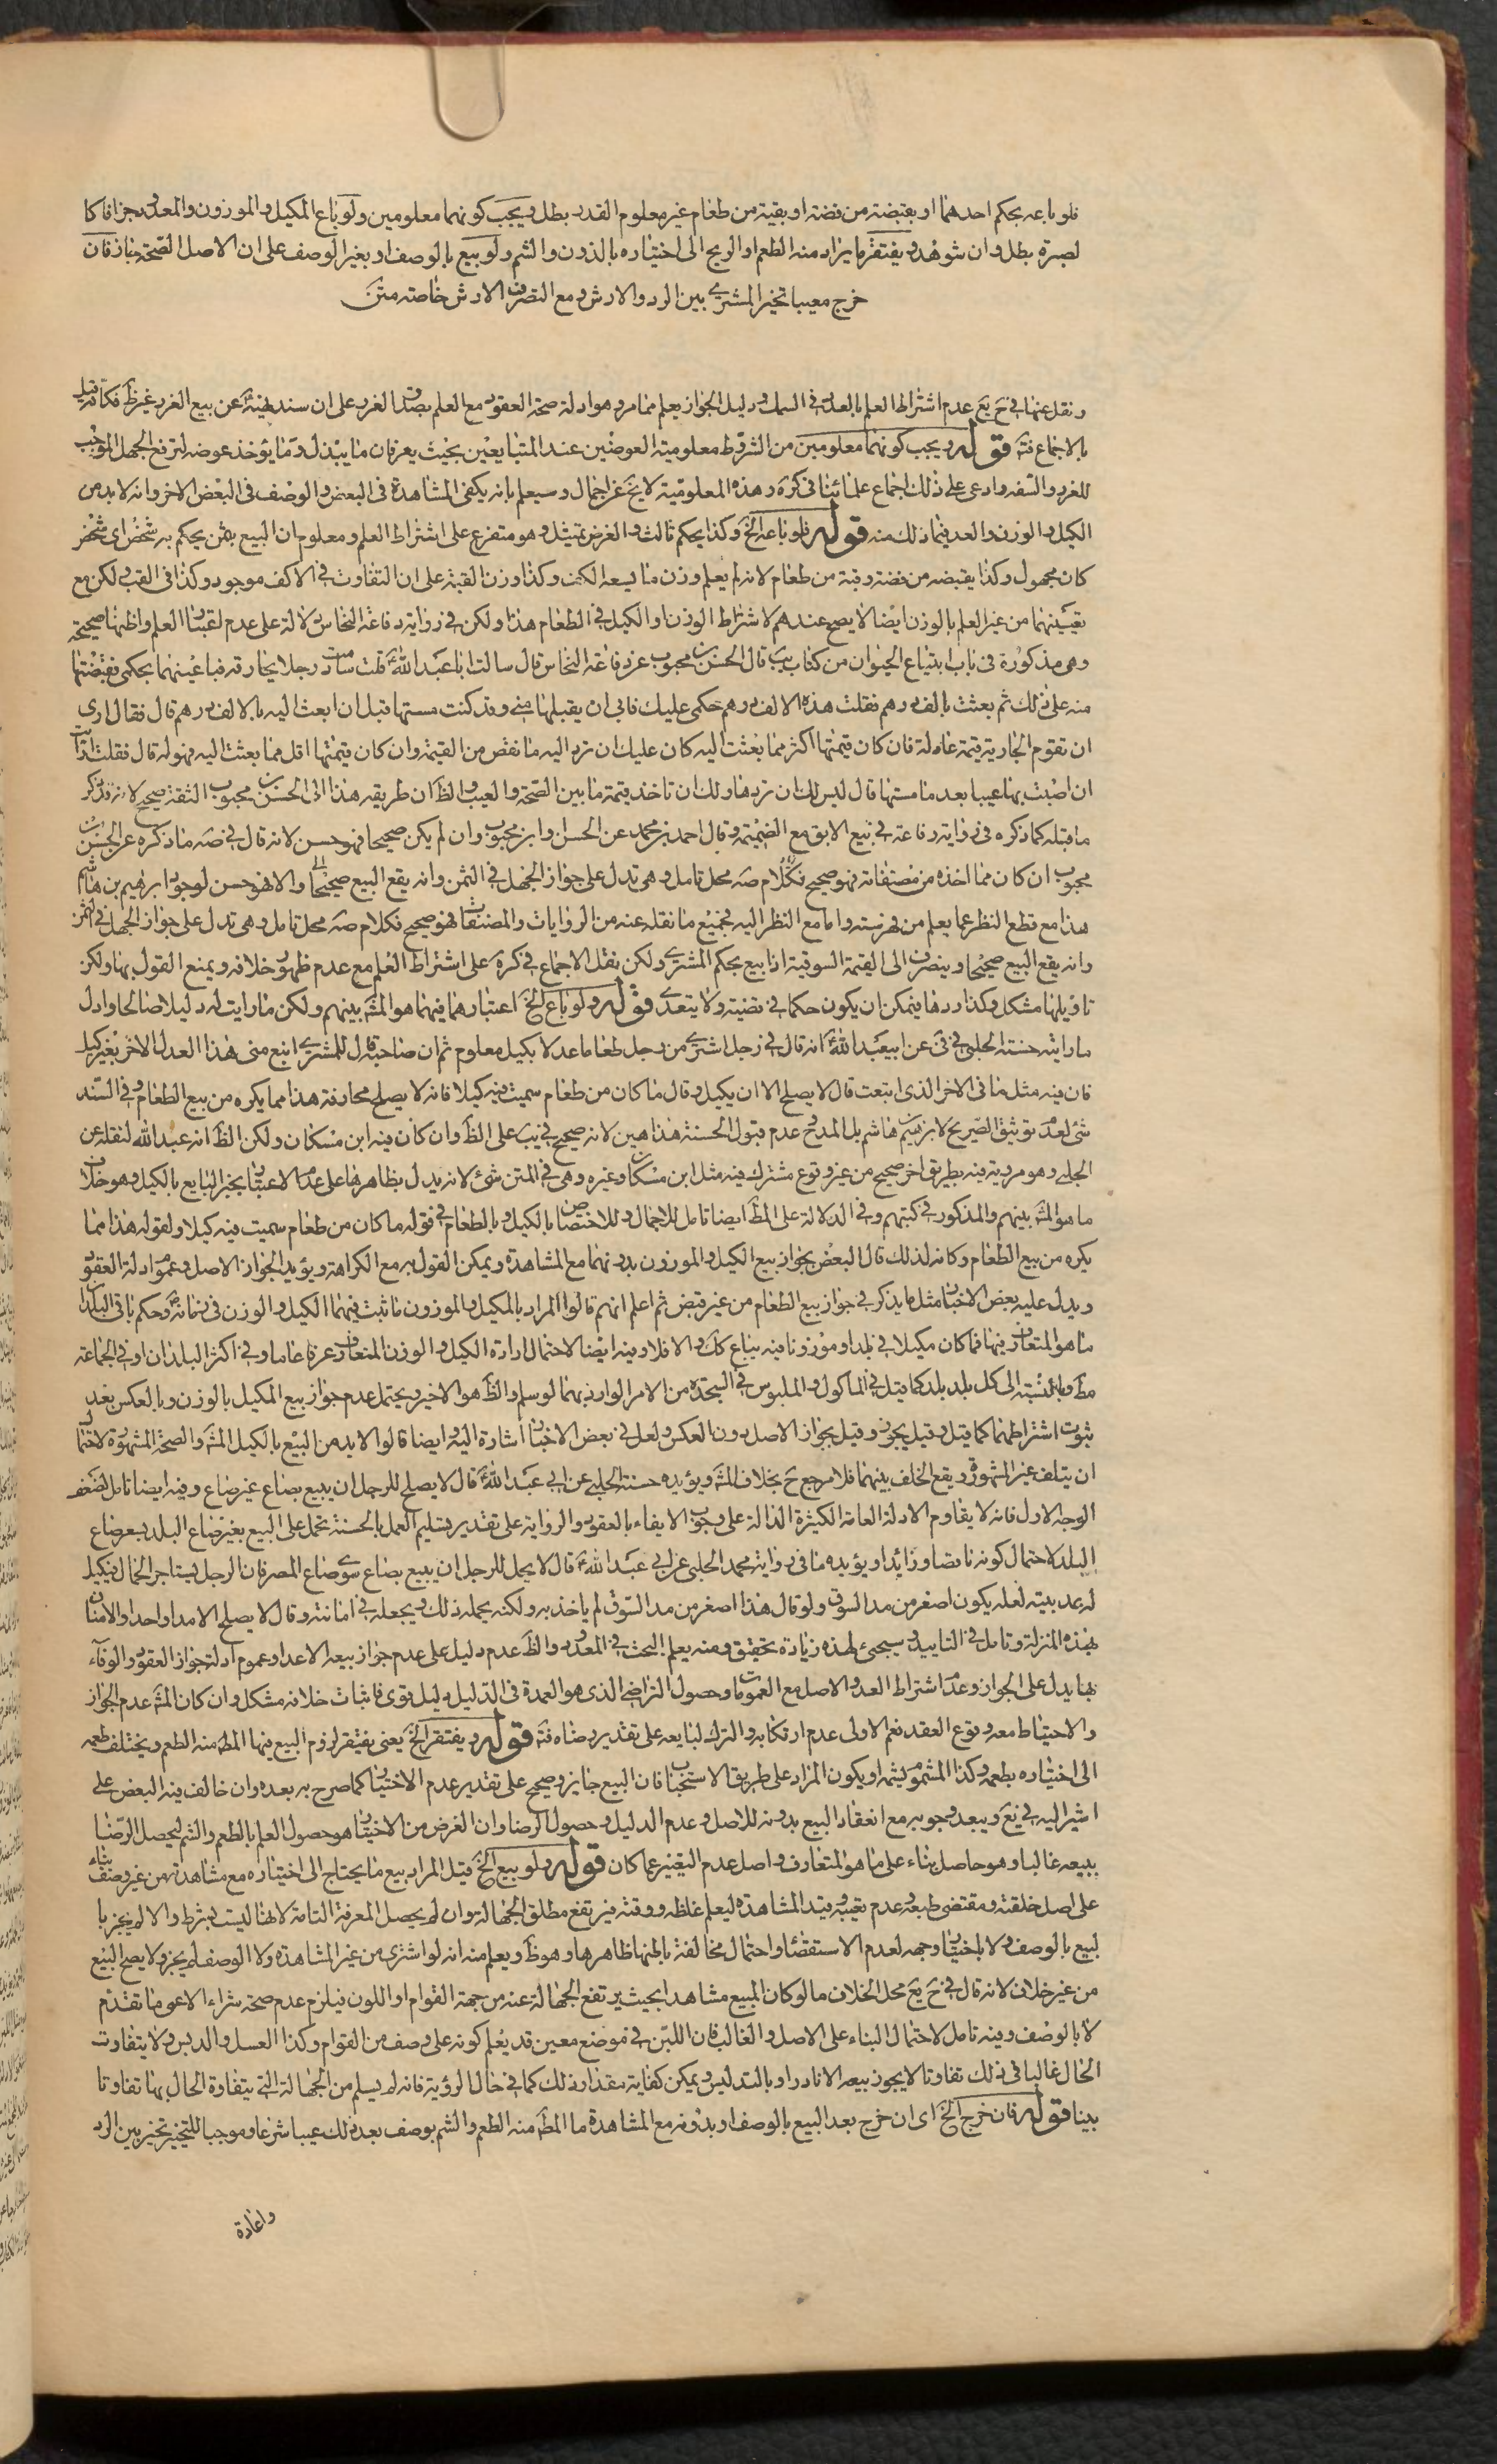 فلو باعه بحكم احدهما او بقبضة من فضة او بقبة من طعام غير معلوم القدر بطل ويجب كونهما معلومين ولو باع المكيل والموزون والمعدود جزافا كا
لصبرة بطل وان شوهد ويفتقر ما يراد منه الطعم او الريح الى اختباره بالذوق والشم ولو بيع بالوصف او بغير الوصف على ان الاصل الصحة جاز فان
خرج معيبا تخير المشترى بين الرد والارش ومع التصرف الارش خاصة متن
ونقل عنها فى ح يع عدم اشتراط العلم بالعدد فى السمك ودليل الجواز يعلم مما مر وهو ادلة صحة العقود مع العلم بصدق الغرر على ان سند نهيه عن بيع الغرر غير ظ فكانه قيل
بالاجماع فتٔه قوله ويجب كونهما معلومين من الشروط معلومية العوضين عند المتبايعين بحيث يعرفان ما يبذل وما يؤخذ عوضه لترفع الجهل الموجب
للغرر والسفه وادعى على ذلك اجماع علمائنا فى كره وهذه المعلومية لا يخ عن اجمال وسيعلم بانه يكفى المشاهدة فى البعض والوصف فى البعض الاخر وانه لا بد من
الكيل والوزن والعد فيما ذلك منه قوله فلو باعه الخ وكذا بحكم ثالث والغرض تمثيل وهو متفرع على اشتراط العلم ومعلوم ان البيع بثمن يحكم به شخص اى شخص
كان مجهول وكذا بقبضه من فضة وقبة من طعام لانه لم يعلم وزن ما يسعه الكف وكذا وزن القبة على ان التفاوت فى الاكف موجود وكذا فى القب ولكن مع
تعيينهما من غير العلم بالوزن ايضا لا يصح عندهم لاشتراط الوزن او الكيل فى الطعام هذا ولكن فى رواية رفاعة النخاس دلالة على عدم اعتبار العلم واظنها صحيحة
وهى مذكورة فى باب ابتياع الحيوان من كتاب يب قال الحسن بن محبوب عن رفاعة النخاس قال سالت ابا عبد الله ع قلت ساومت رجلا بجارية فباعنيها بحكمى فقبضتها
منه على ذلك ثم بعثت بالف درهم فقلت هذه الالف درهم حكمى عليك فابى ان يقبلها منى وقد كنت مسستها قبل ان ابعث اليه بالالف درهم قال فقال ارى
ان تقوم الجارية قيمة عادلة فان كان قيمتها اكثر مما بعثت اليه كان عليك ان ترد اليه ما نقص من القيمة وان كان قيمتها اقل مما بعثت اليه فهو له قال فقلت ارايت
ان اصبت بها عيبا بعد ما مسستها قال ليس لك ان تردها ولك ان تاخذ قيمة ما بين الصحة والعيب والظ ان طريقه هذا الى الحسن بن محبوب الثقة صحيح لانه قد ذكر
ما قبله كما ذكره فى رواية رفاعة فى بيع الابق مع الضميمة وقال احمد بن محمد عن الحسن وابن محبوب وان لم يكن صحيحا فهو حسن لانه قال فى صه ما ذكره عن الحسن بن
محبوب ان كان مما اخذه من مصنفاته فهو صحيح فكلام صه محل تامل وهى تدل على جواز الجهل فى الثمن وانه يقع البيع صحيحا والا فهو حسن لوجود ابرهيم بن هاشم
هذا مع قطع النظر عما يعلم من فهرسته واما مع النظر اليه فجميع ما نقله عنه من الروايات والمصنفات فهو صحيح فكلام صه محل تامل وهى تدل على جواز الجهل فى الثمن
وانه يقع البيع صحيحا وينصرف الى القيمة السوقية اذا بيع بحكم المشترى ولكن نقل الاجماع فى كره على اشتراط العلم مع عدم ظهور خلافه ويمنع القول بها ولكن
تاويلها مشكل وكذا ردها فيمكن ان يكون حكما فى قضية ولا يتعدى قوله ولو باع الخ اعتبارهما فيهما هو المشه بينهم ولكن ما رايت له دليلا صالحا وادل
ما رايته حسنة الحلبى فى فى عن ابى عبد الله ع انه قال فى رجل اشترى من رجل طعاما عدلا بكيل معلوم ثم ان صاحبه قال للمشترى ابتع منى هذا العدل الاخر بغير كيل
فان فيه مثل ما فى الاخر الذى ابتعت قال لا يصلح الا ان يكيل وقال ما كان من طعام سميت فيه كيلا فانه لا يصلح مجازفة هذا مما يكره من بيع الطعام وفى السند
شئ لعدم توثيق الصريح لابرهيم بن هاشم بل المدح عدم قبول الحسنة هذا هين لانه صحيح فى يب على الظ وان كان فيه ابن مسكان ولكن الظ انه عبد الله لنقله عن
الحلبى وهو مروية فيه بطريق اخر صحيح من غير وقوع مشترك فيه مثل ابن مسكان وغيره وهى فى المتن شئ لانه يدل بظاهرها على عدم الاعتبار بخبر البايع بالكيل وهو خلاف
ما هو المشه بينهم والمذكور فى كتبهم وفى الدلالة على المط ايضا تامل للاجمال وللاختصاص بالكيل وبالطعام فى قوله ما كان من طعام سميت فيه كيلا ولقوله هذا مما
يكره من بيع الطعام وكانه لذلك قال البعض بجواز بيع الكيل والموزون بدونهما مع المشاهدة ويمكن القول به مع الكراهة ويؤيد الجواز الاصل وعموم ادلة العقود
ويدل عليه بعض الاخبار مثل ما يذكر فى جواز بيع الطعام من غير قبض ثم اعلم انهم قالوا المراد بالمكيل والموزون ما ثبت فيهما الكيل والوزن فى زمانه ص وحكم باقى البلدان
ما هو المتعارف فيها فما كان مكيلا فى بلد او موزونا فيه يباع كك والا فلا وفيه ايضا لاحتمال ارادة الكيل والوزن المتعارف عرفا عاما وفى اكثر البلدان او فى الجماعة
مط وبالنسبة الى كل بلد بلد كما قيل فى الماكول والملبوس فى السجدة من الامر الوارد بهما لو سلم والظ هو الاخير ويحتمل عدم جواز بيع المكيل بالوزن وبالعكس بعد
ثبوت اشتراطهما كما قيل وقيل يجوز وقيل بجواز الاصل دون العكس ولعل فى بعض الاخبار اشارة اليه وايضا قالوا لا بد من البيع بالكيل المشه والصحة المشهورة لاحتمال
ان يتلف غير المشهورة ويقع الخلف بينهما فلا مرجع ح بخلاف المشه ويؤيده حسنة الحلبى عن ابى عبد الله ع قال لا يصلح للرجل ان يبيع بصاع غير صاع وفيه ايضا تامل لضعف
الوجه الاول فانه لا يقاوم الادلة العامة الكثيرة الدالة على وجوب الايفاء بالعقود والرواية على تقدير تسليم العمل بالحسنة تحمل على البيع بغير صاع البلد بسعر صاع
البلد لاحتمال كونه ناقصا وزائدا ويؤيده ما فى رواية محمد الحلبى عن ابى عبد الله ع قال لا يحل للرجل ان يبيع بصاع سوى صاع المصر فان الرجل يستاجر الحمال فيكيل
له بمد بيته لعله يكون اصغر من مد السوق ولو قال هذا اصغر من مد السوق لم ياخذ به ولكنه يحمله ذلك ويجعله فى امانته وقال لا يصلح الا مدا واحدا والامنان
بهذه المنزلة وتامل فى التاييد وسيجئ لهذه زيادة تحقيق ومنه يعلم البحث فى المعدود والظ عدم دليل على عدم جواز بيعه الا عدا وعموم ادلة جواز العقود والوفآء
بها يدل على الجواز وعدم اشتراط العد والاصل مع العمومات وحصول التراضى الذى هو العمدة فى الدليل دليل قوى فاثبات خلافه مشكل وان كان المشه عدم الجواز
والاحتياط معه وقوع العقد نعم الاولى عدم ارتكابه والترك لبايعه على تقدير رضاه فته قوله ويفتقر الخ يعنى يفتقر لزوم البيع فيها المط منه الطعم ويختلف طعمه
الى اختباره بطعمه وكذا المشموم يشمه او يكون المراد على طريق الاستحباب فان البيع جايز وصحيح على تقدير عدم الاختبار كما صرح به بعده وان خالف فيه البعض على
اشير اليه فى يع ويبعد وجوبه مع انعقاد البيع بدونه للاصل وعدم الدليل وحصول الرضا وان الغرض من الاختبار هو حصول العلم بالطعم والشم ليحصل الرضا
ببيعه غالبا وهو حاصل بناء على ما هو المتعارف واصل عدم التغير عما كان قوله ولو بيع الخ قيل المراد بيع ما يحتاج الى اختباره مع مشاهدته من غير وصف بناء
على اصل خلقته ومقتضى طبعه وعدم تعيبه وقيد المشاهدة ليعلم غلظه ورقته فيرتفع مطلق الجهالة وان لم يحصل المعرفة التامة لانها ليست بشرط والا لم يجز با
لبيع بالوصف ولا باختبار وجهه لعدم الاستقصاء واحتمال مخالفة باطنها ظاهرها وهو ظ ويعلم منه انه لو اشترى من غير المشاهدة ولا الوصف لم يجز ولا يصح البيع
من غير خلاف لانه قال فى ح يع محل الخلاف ما لو كان المبيع مشاهدا بحيث يرتفع الجهالة عنه من جهة القوام او اللون فيلزم عدم صحة شراء الاعمى ما تقدم
لا بالوصف وفيه تامل لاحتمال البناء على الاصل والغالب فان اللبن فى موضع معين قد يعلم كونه على وصف من القوام وكذا العسل والدبس ولا يتفاوت
الحال غالبا فى ذلك تفاوتا لا يجوز بيعه الا نادرا وبالتدليس ويمكن كفاية مقدار ذلك كما فى حال الرؤية فانه لم يسلم من الجهالة التى يتفاوة الحال بها تفاوتا
بينا قوله فان خرج الخ اى ان خرج بعد البيع بالوصف او بدونه مع المشاهدة ما المط منه الطعم والشم بوصف بعد ذلك عيبا شرعا وموجبا للتخيير تخير بين الرد
واعادة